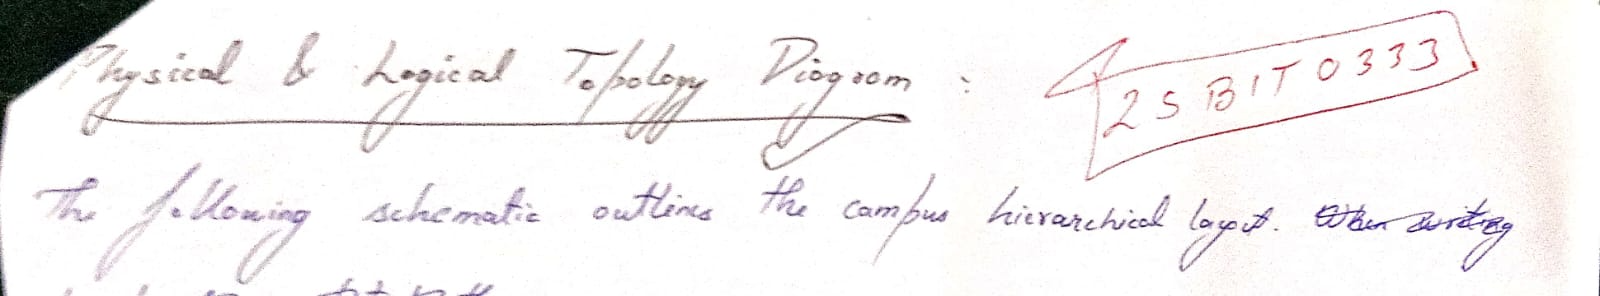 Physical & Logical Topology Diagram :
25BIT0333
The following schematic outlines the campus hierarchical layout. When writing